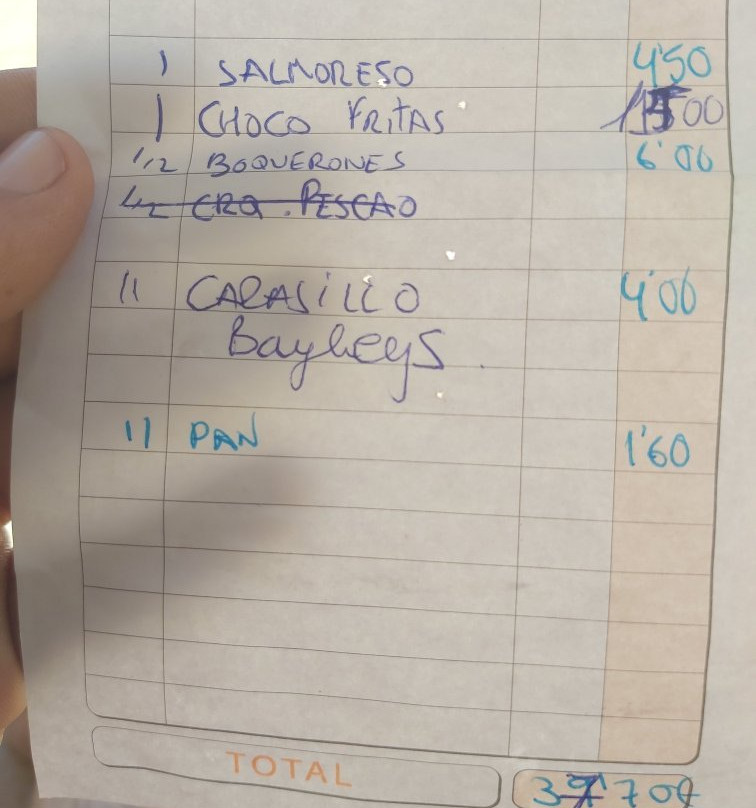 1 SALMORESO 4'50
1 CHOCO FRITAS
1/2 BOQUERONES 6'00
1/2 CRO. PESCAO
11 CARASILLO 4'00
Bayleys
11 PAN 1'60
TOTAL